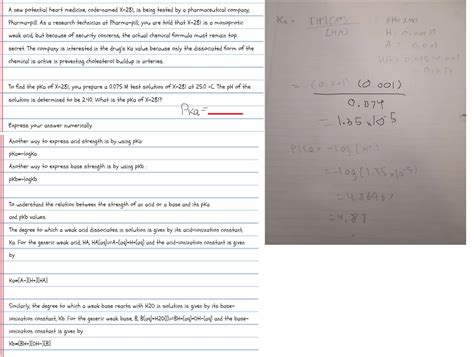 A new potential heart medicine, code-named X-281, is being tested by a pharmaceutical company,
Pharma-pill. As a research technician at Pharma-pill, you are told that X-281 is a monoprotic
weak acid, but because of security concerns, the actual chemical formula must remain top
secret. The company is interested in the drug's Ka value because only the dissociated form of the
chemical is active in preventing cholesterol buildup in arteries.
To find the pKa of X-281, you prepare a 0.075 M test solution of X-281 at 25.0 ∘C. The pH of the
solution is determined to be 2.40. What is the pKa of X-281?
Pka=
Express your answer numerically.
Another way to express acid strength is by using pKa:
pKa=-logKa
Another way to express base strength is by using pKb :
pKb=-logKb
To understand the relation between the strength of an acid or a base and its pKa
and pKb values.
The degree to which a weak acid dissociates in solution is given by its acid-ionization constant,
Ka. For the generic weak acid, HA, HA(aq)⇌A-(aq)+H+(aq) and the acid-ionization constant is given
by
Ka=[A-][H+][HA]
Similarly, the degree to which a weak base reacts with H2O in solution is given by its base-
ionization constant, Kb. For the generic weak base, B, B(aq)+H2O(l)⇌BH+(aq)+OH-(aq) and the base-
ionization constant is given by
Kb=[BH+][OH-][B]
Ka =
[HA]
(0.001)
0.074
= 1.35 x10-5
= -log (1.35 x10-5)
= 4.8696
= 4.87